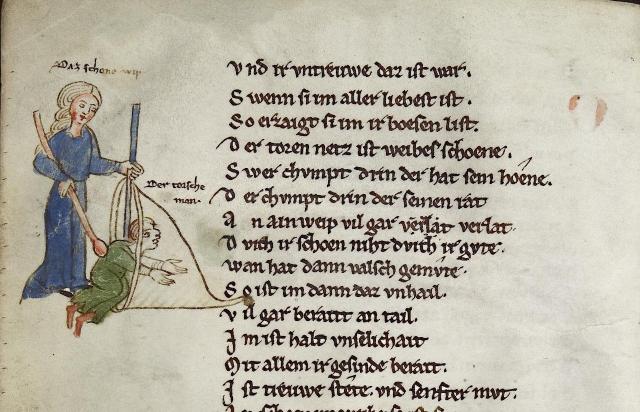 Daz schone wip
Der torsche
man.
vnd ir vntreuwe daz ist war.
Swenn si im aller liebest ist.
So erzaigt si im ir boesen list.
Der toren netz ist weibes schoene.
Swer chvmpt drin der hat sein hoene.
Der chvmpt drin der seinen rat
An ain weip vil gar verlat
Dvrch ir schoen niht dvrch ir gvte.
wan hat dann valsch gemvte.
So ist im dann daz vnhail.
vil gar berait an tail.
Im ist halt vnselichait
Mit allem ir gesinde berait.
Ist treuwe stete. vnd senfter mvt.